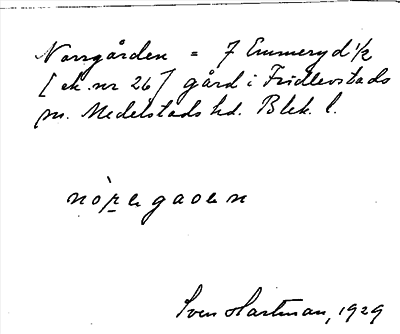 Norrgården = 7 Emmeryd 1/2
[ek. nr 26] gård i Fridlevstads
sn. Medelstads hd. Blek. l.
nòregaoen
Sven Hartman, 1929